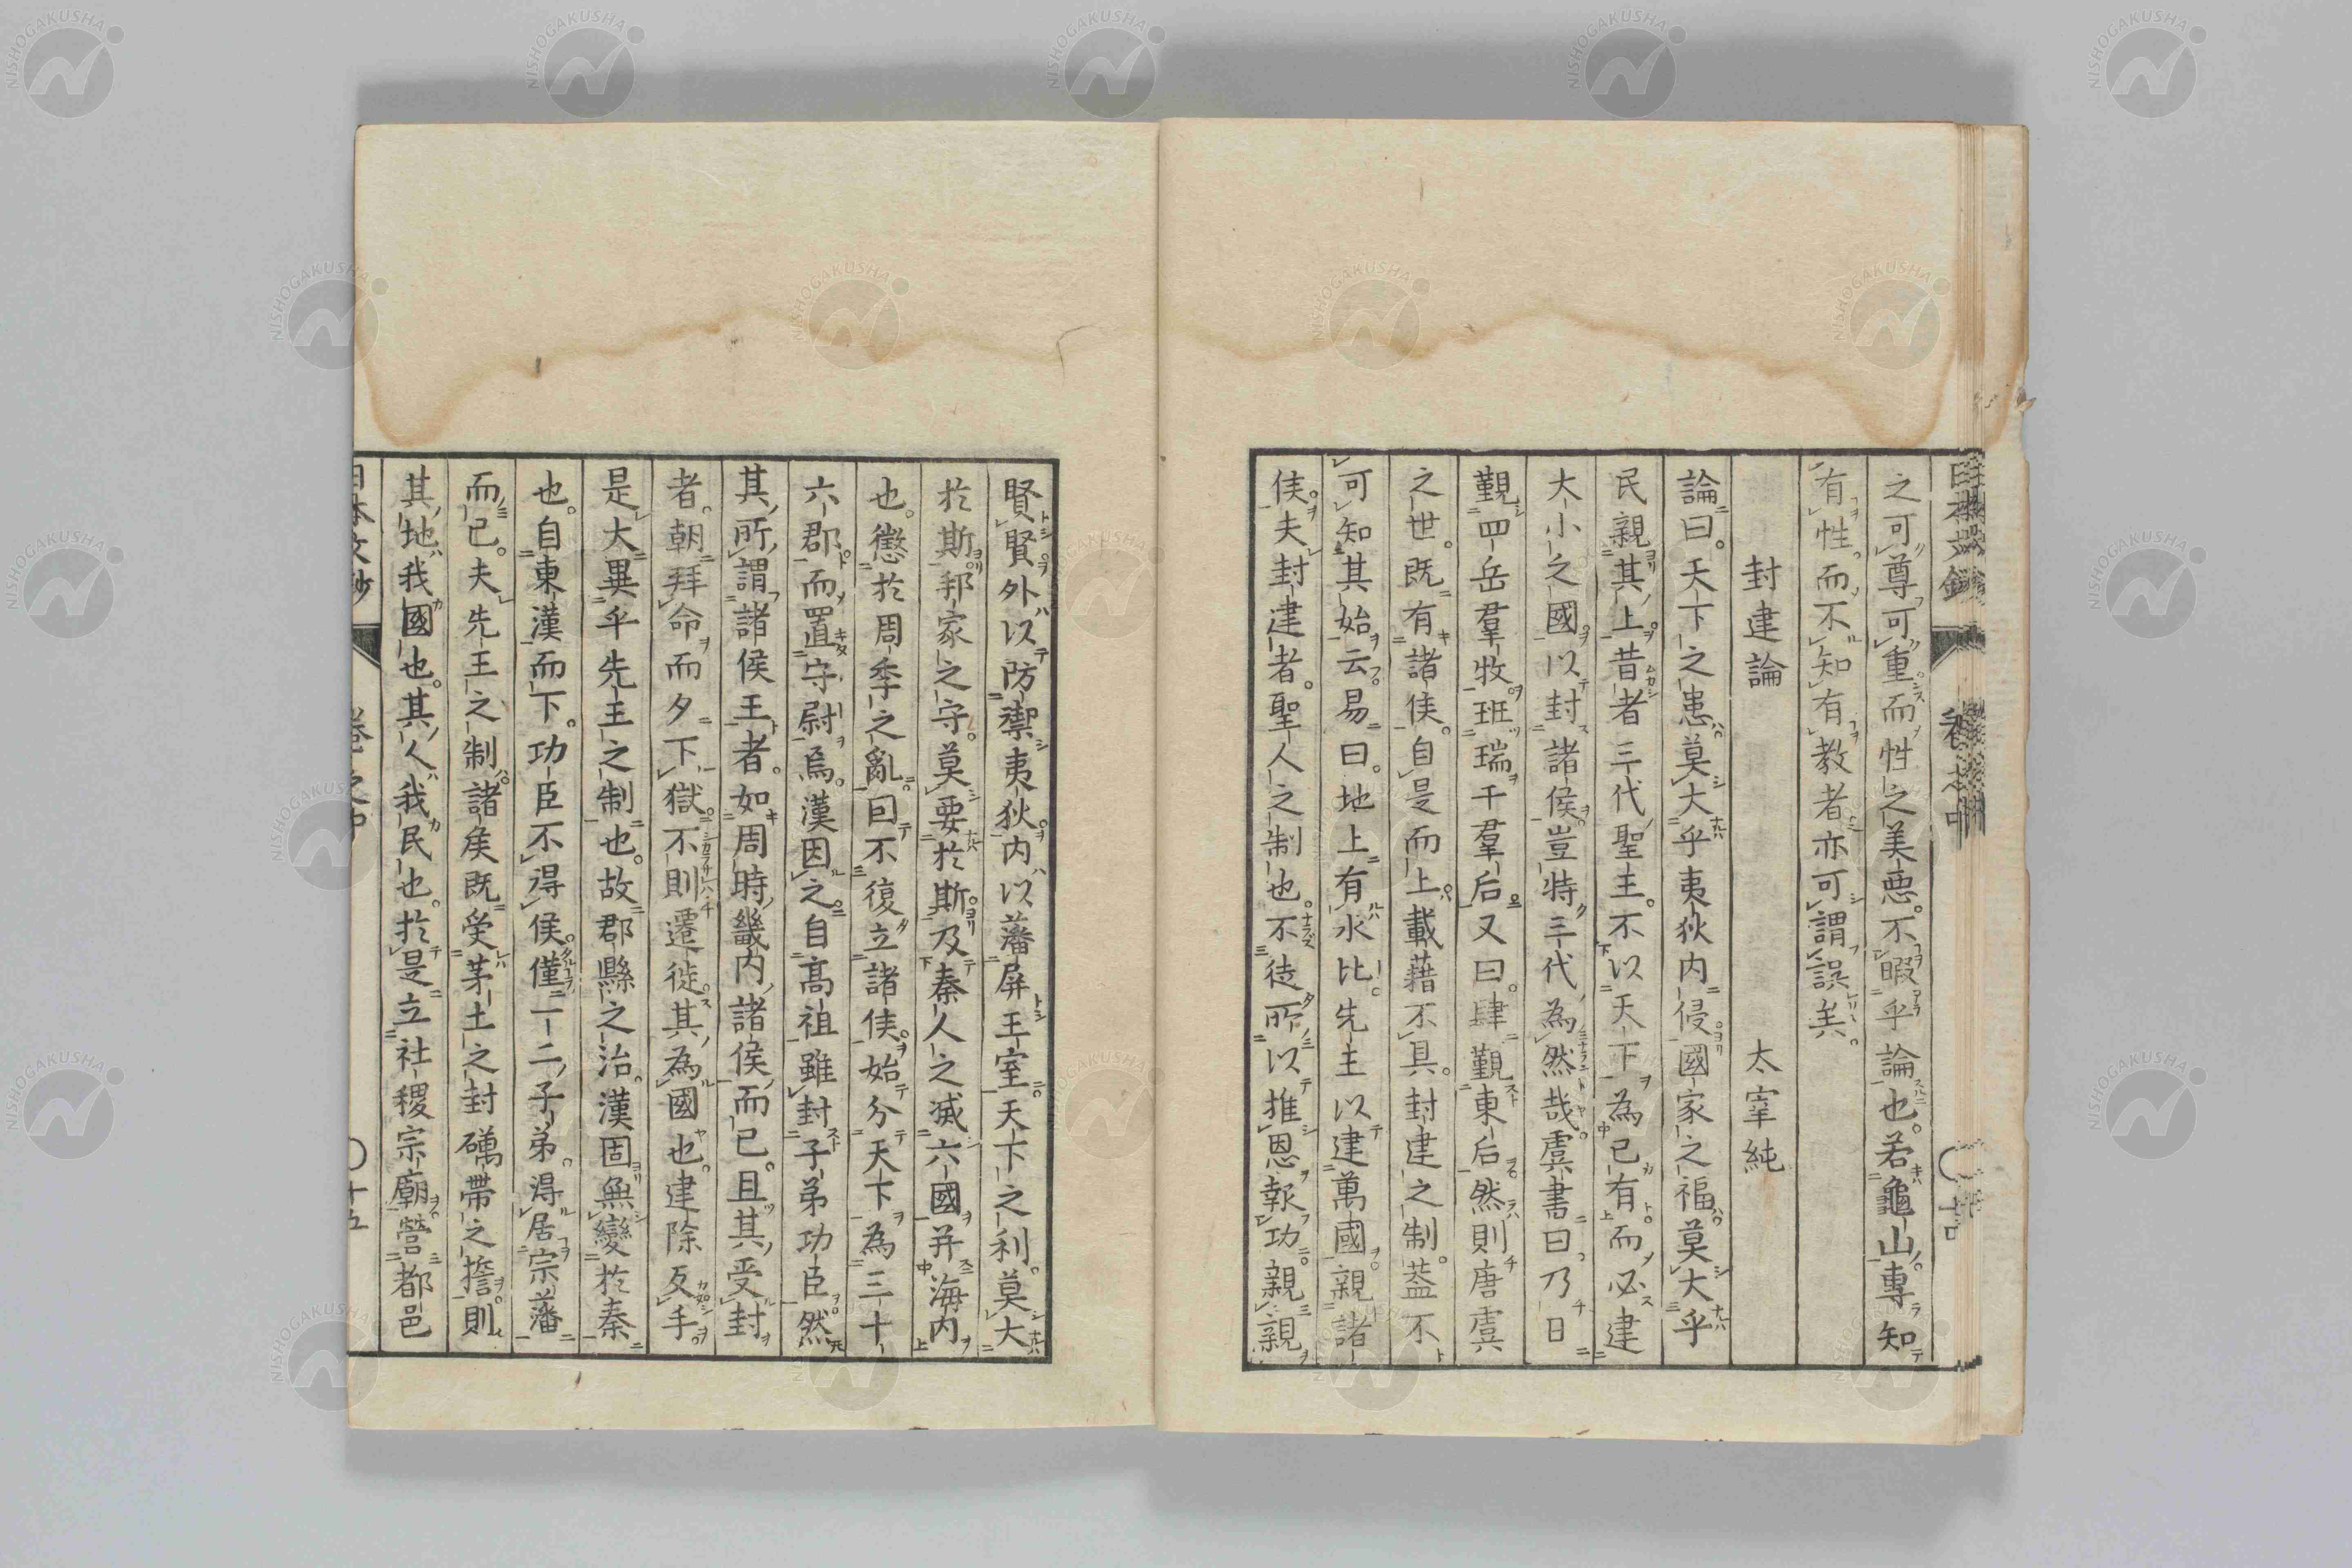 之可尊可重而性之美惡不暇乎論也若龜山專知
有性而不知有教者亦可謂誤矣
封建論 太宰純
論曰天下之患莫大乎夷狄内侵國家之福莫大乎
民親其上昔者三代聖主不以天下為己有而必建
大小之國以封諸侯豈特三代為然哉虞書曰乃日
覲四岳羣牧班瑞于羣后又曰肆覲東后然則唐虞
之世既有諸侯自是而上載藉不具封建之制蓋不
可知其始云易曰地上有水比先王以建萬國親諸
侯夫封建者聖人之制也不徒所以推恩報功親親
賢賢外以防禦夷狄内以藩屏王室天下之利莫大
於斯邦家之守莫要於斯及秦人之滅六國并海内
也懲於周季之亂因不復立諸侯始分天下為三十
六郡而置守尉焉漢因之自高祖雖封子弟功臣然
其所謂諸侯王者如周時畿内諸侯而已且其受封
者朝拜命而夕下獄不則遷徙其為國也建除反手
是大異乎先王之制也故郡縣之治漢固無變於秦
也自東漢而下功臣不得侯僅一二子弟得居宗藩
而已夫先王之制諸侯既受茅土之封礪帶之擔則
其地我國也其人我民也於是立社稷宗廟營都邑
日本文鈔 卷之中 十五